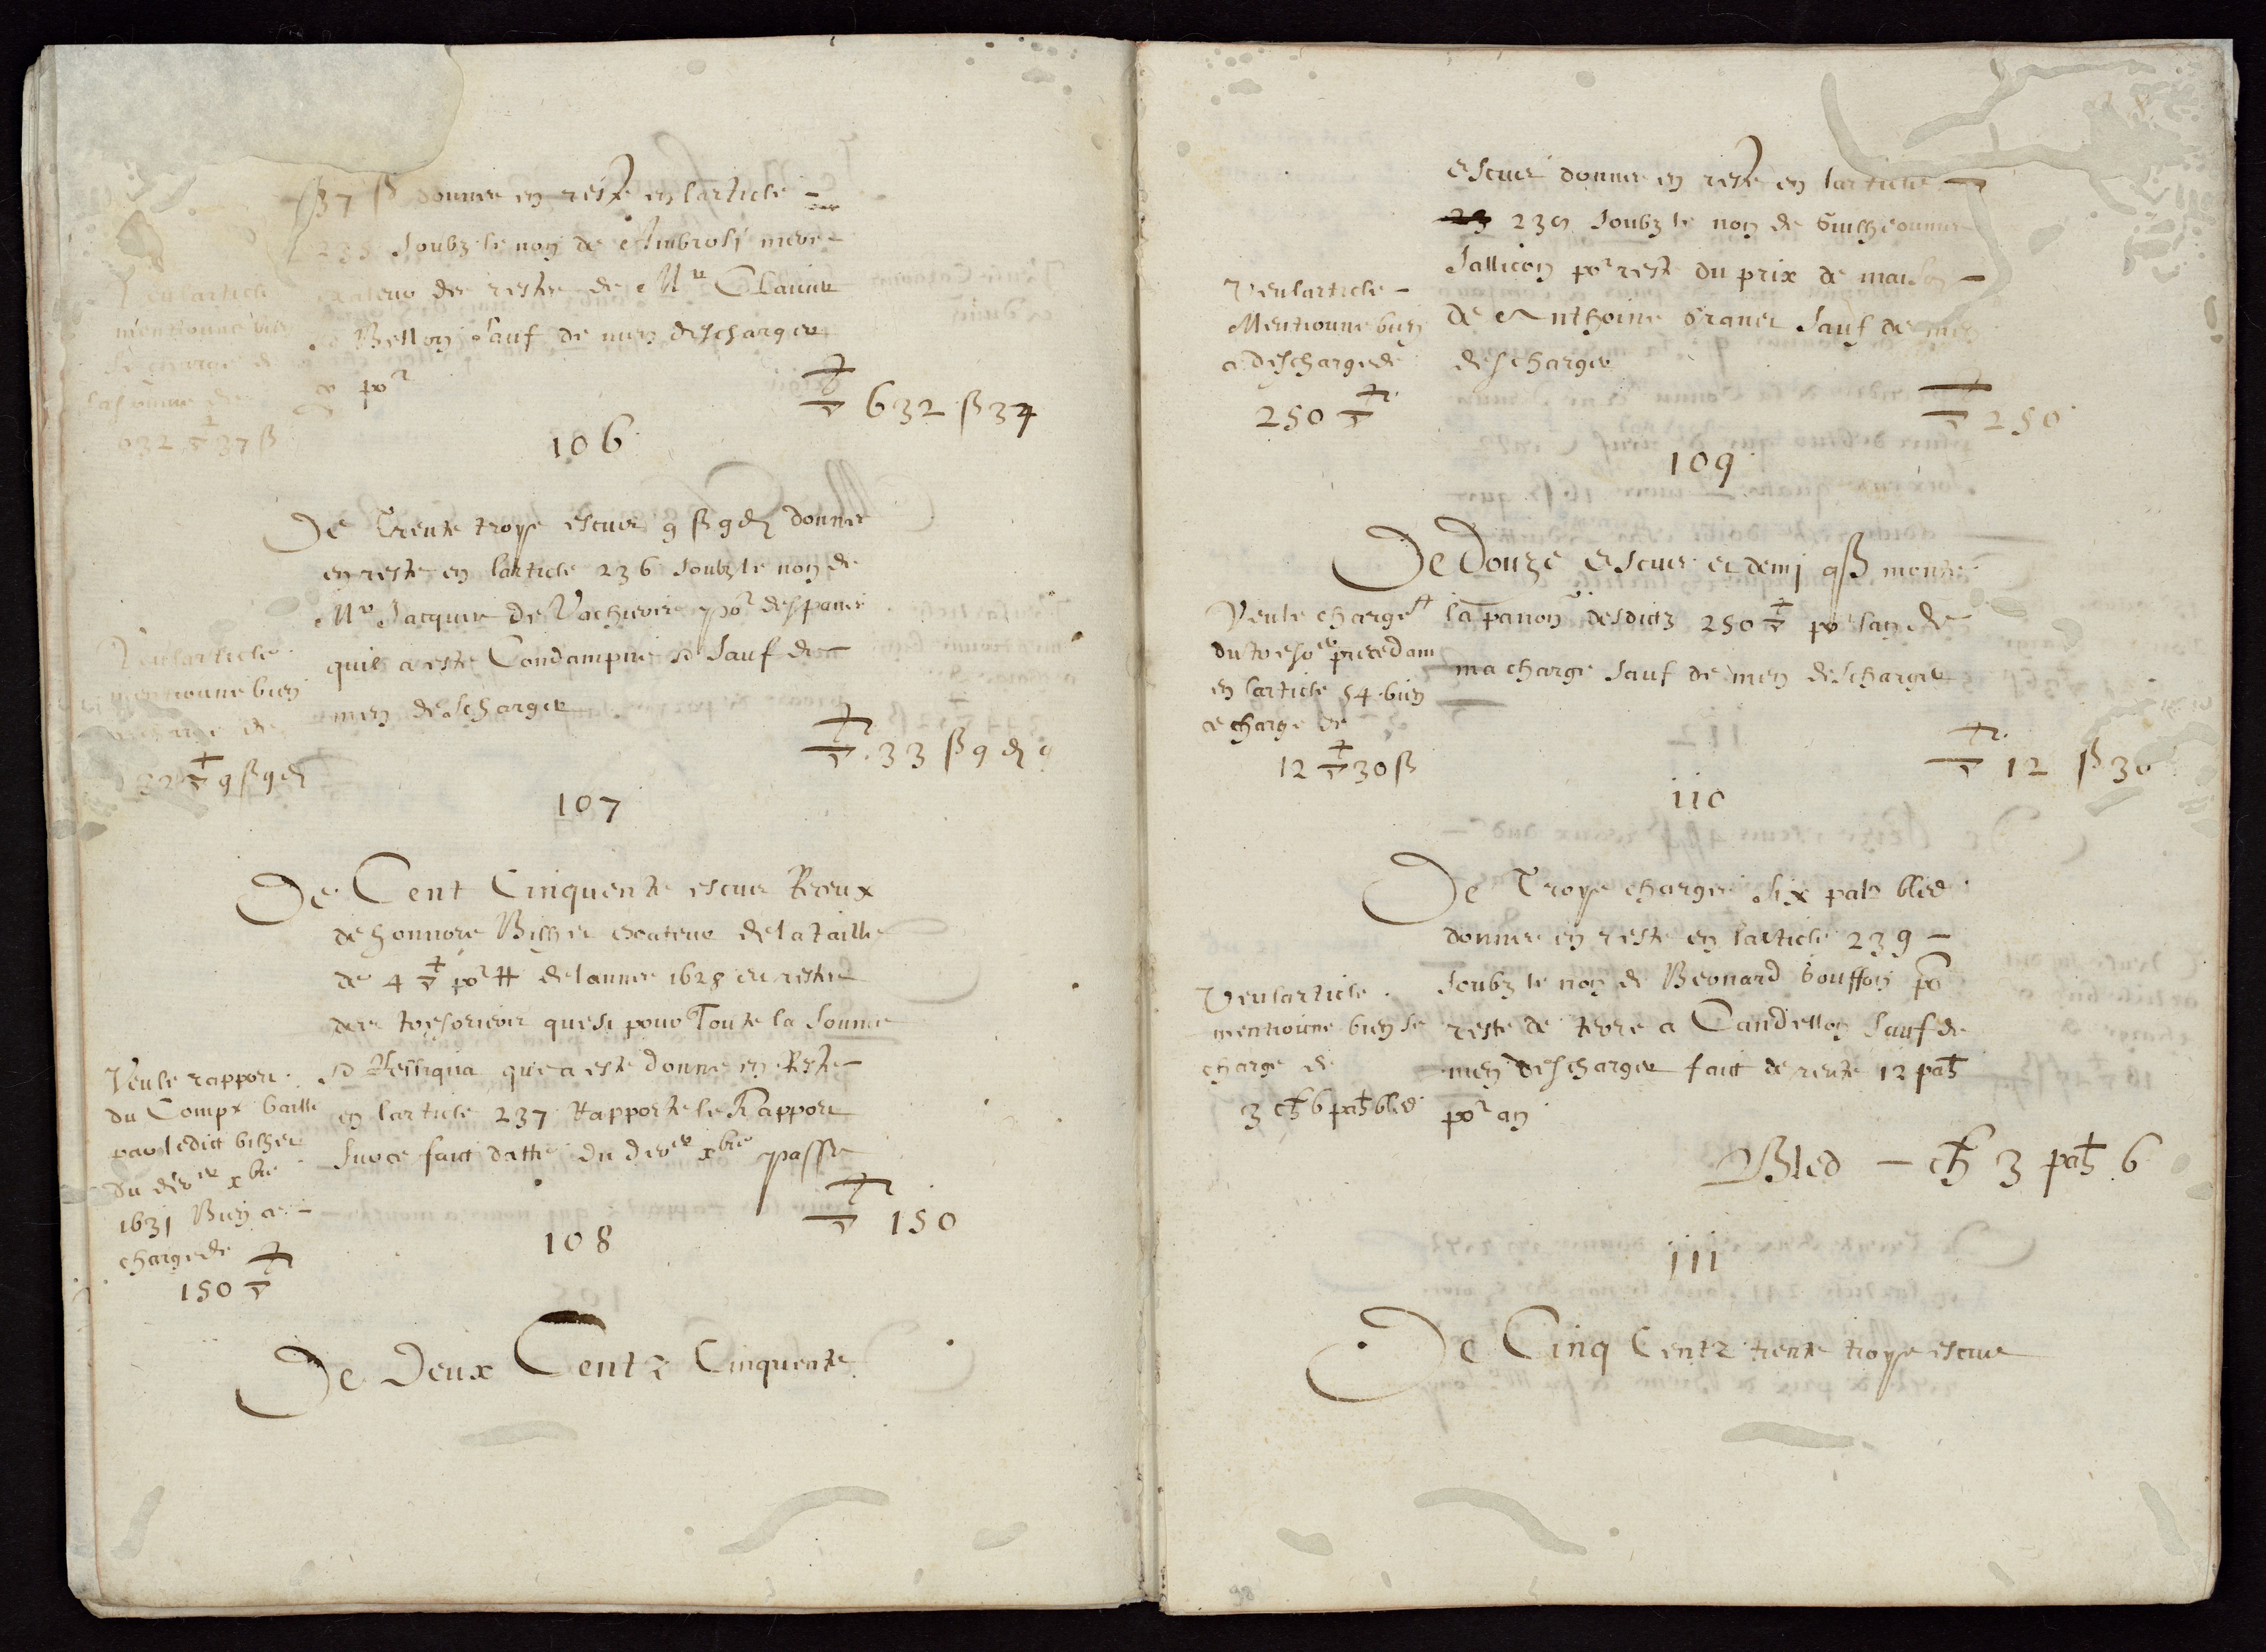 37 ß donnes en reste en larticle
235 soubz le nom de Ambrosi mere
exateur des restes de Mre Claude
Bellon sauf de men descharger
Veu larticle
mentionne bien
se charge de
la somme de
632 37 ß
ce por
632 ß 37
106
De Trente troys escus 9 ß 9 d donnes
en reste en larticle 236 soubz le nom de
Mre Jacques De Vachieres por despans
quil a este Condampne sauf de
men descharger
Veu larticle
mentionne bien
charge de
33 9 ß 9 d
33 ß 9 d 9
107
De Cent Cinquente escus Receux
de honnore Bilher exateur de la taille
de 4 por # de lannee 1628 et restes
des tresoriers quest pour Toute la somme
Relliqua que a este donne en Reste
en larticle 237 Rapporte le Rapport
sur ce faict datte du derer xbre passe
Veu le rapport
du Compt baille
par ledict bilher
du derer xbre
1631 Bien ce
charge de
150
150
108
De Deux Centz Cinquente
escus donnes en reste en larticle
238 soubz le nom de Guilheaumes
Sallicon por reste du prix de maison
de Anthoine Graner sauf de men
descharger
Veu larticle
Mentionne bien
ce descharge de
250
250
109
De Douze escus et demi q ß monte
la panon desdictz 250 por lan de
ma charge sauf de men descharger
Veu le charget
du tresoer precedam
en larticle 54 bien
ce charge de
12 30 ß
12 ß 30
110
De Troys charges six pals bled
donnes en reste en larticle 239
soubz le nom de Beonard bouffon po
reste de terre a Candellon sauf de
men descharger faict de rente 12 pals
por an
Veu larticle
mentionne bien se
charge de
3 ch 6 pah bled
Bled - ch 3 pah 6
111
De Cinq Centz trente troys escus